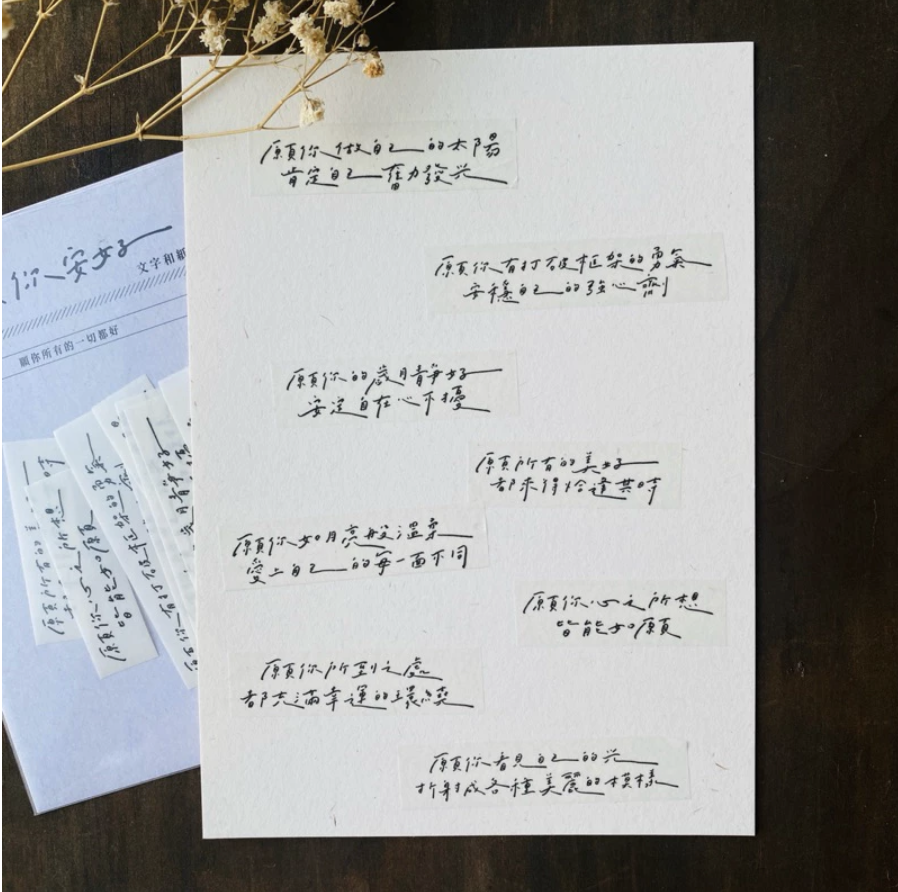 願你做自己的太陽
肯定自己奮力發光
願你有打破框架的勇氣
安穩自己的強心劑
願你的歲月靜好
安定自在心不擾
願所有的美好
都來得恰逢其時
願你如月亮般溫柔
愛上自己的每一面不同
願你心之所想
皆能如願
願你所到之處
都充滿幸運的環繞
願你看見自己的光
折射成各種美麗的模樣
你安好
文字和紙
願你所有的一切都好
願所有的美
時
之所想
願你心
皆能如願